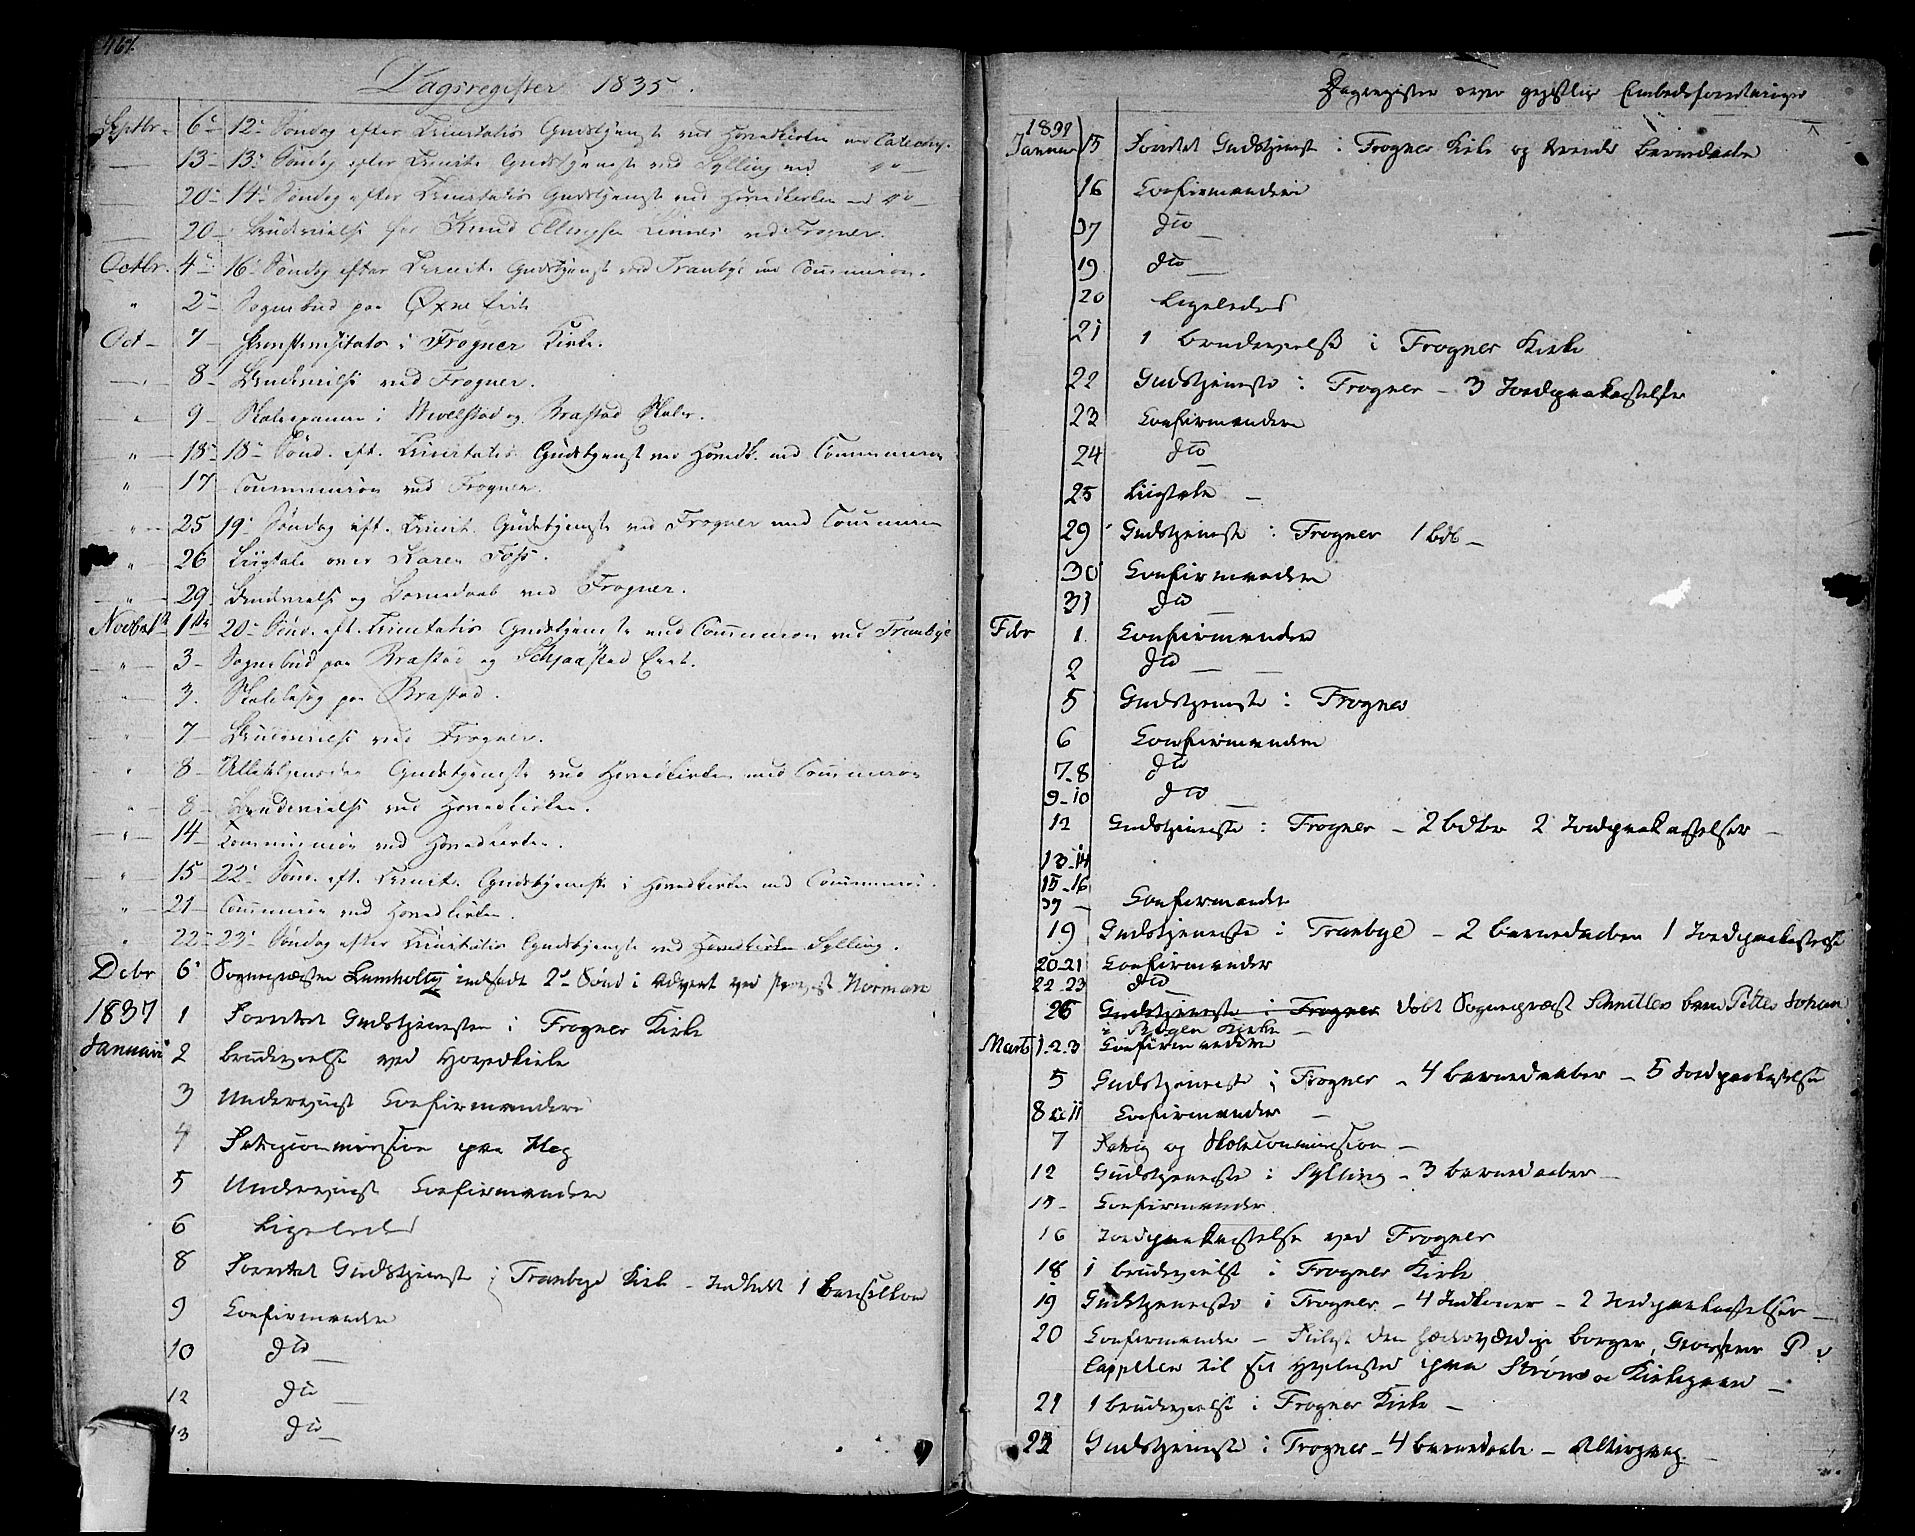 467.
Dagsregister 1835.
Septbr. 6 12' Søndag efter Trinitatis Gudstjeneste ved Hovedkirken
13 13' Søndag efter Trinit. Gudstjeneste ved Sylling ved do
20 14' Søndag efter Trinitatis Gudstjeneste ved Hovedkirken do
20 Brudevielse for Knud Ellingsen ved Frogner.
Octbr. 4 16' Søndag efter Trinit. Gudstjenest ved Tranbye Communion.
" 2 Sognebud paa Øxne Eiet
Oct 7 i Frogner Kirke.
8 Brudevielse ved Frogner.
9 Skoleexamen i og Brastad Skoler.
" 18 18 Sønd. eft. Trinitatis Gudstjenest ved Hovedk. med Communion
" 17 Communion ved Frogner.
" 25 19' Søndag eft. Trinit. Gudstjeneste ved Frogner med Communion
" 26 Liigtale over Karen Foss.
" 29 Brudevielse og Barnedaab ved Frogner.
Novbr. 1ste 20' Sønd. eft. Trinitatis Gudstjeneste med Communion ved Tranbye
" 3 Sognebud paa Brastad og Schjaastad Eiet.
" 3. paa Brastad.
" 7 Brudevielse ved Frogner.
" 8 Gudstjeneste ved Hovedkirken med Communion
" 8 Brudevielse ved Hovedkirken.
" 14 Communion ved Hovedkirken.
" 15 22' Sønd. eft. Trinit. Gudstjeneste i Hovedkirken med Communion.
" 21 Communion ved Hovedkirken.
" 22 23' Søndag efter Trinitatis Gudstjeneste ved Hovedkirken Sylling.
Dcbr 6 Sognepræsten Lumholtz indsadt 2' Sønd i Advent ved Provst Norman
1837 1 Forrettet Gudstjenesten i Frogner Kirke
Januari 2 Brudevielse ved Hovedkirke
3 Underviist Confirmander
4 Fatigcommission paa Heg
5 Underviist Confirmander
6 Ligeledes
8 Forrettet Gudstjeneste i Tranbye Kirke - Indledt 1 Barselkone
9 Confirmander
10 Dto
12 Dto
13 Dto
Dagregister over geistlige Embedsforretninger
1837
Januar 15 Forrettet Gudstjeneste i Frogner Kirke og tvende Barnedaabe
16 Confirmander
17 Dto
19 Dto
20 Ligeledes
21 1 Brudevielse i Frogner Kirke
22 Gudstjeneste i Frogner - 3 Jordpaakastelser
23 Confirmander
24 Dto
25 Liigtale
29 Gudstjeneste i Frogner 1 bdb
30 Confirmander
31 Dto
Febr 1 Confirmander
2 Dto
5 Gudstjeneste i Frogner
6 Confirmander
7-8 Dto
9-10 Dto
12 Gudstjeneste i Frogner - 2 bdbe 2 Jordpaakastelser
13-14
15-16
17 Confirmander
19 Gudstjeneste i Tranbye - 2 Barnedaaber 1 Jordpaakastelse
20-21 Confirmander
22-23 Dto
26 Gudstjeneste i Frogner Døbt Sognepræst Schnitlers barn Petter Johan
i Røgen Kirke
Marts 1.2.3 Confirmandere
5 Gudstjeneste i Frogner - 4 barnedaaber - 5 Jordpaakastelse
8 11 Confirmander
7 Fatig og Skolecommission
12 Gudstjeneste i Sylling - 3 barnedaaber
15 Confirmander
16 Jordpaakastelse ved Frogner
18 1 Brudevielse i Frogner Kirke
19 Gudstjeneste i Frogner - 4 Indkoner - 2 Jordpaakastelser
20 Confirmander - Fulgt den hæderværdige Borger, P. v
Cappelen til sit Hvilested paa Strømsøe Kirkegaard
21 1 brudevielse i Frogner Kirke
Gudstjeneste i Frogner - 4 barnedaabe - Altergang